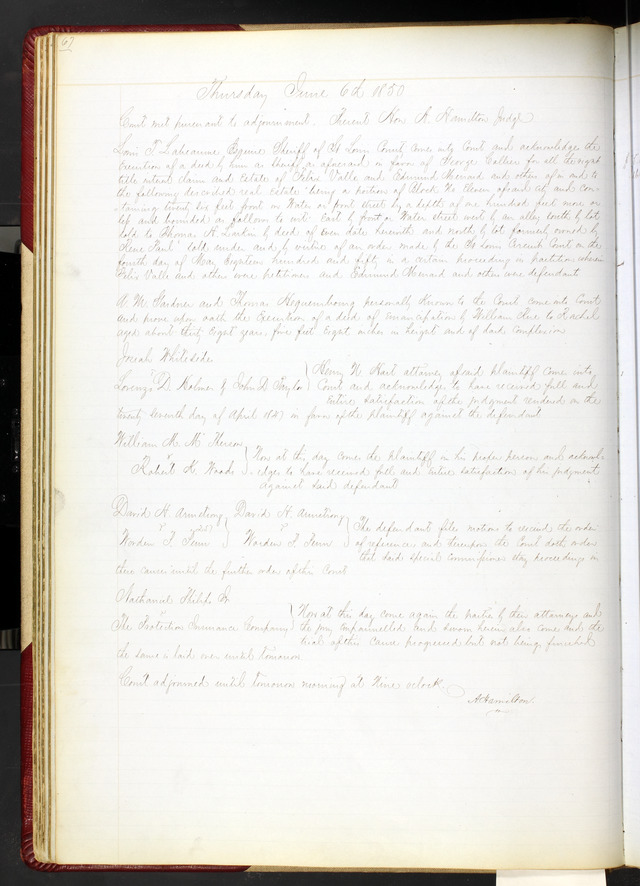 67
Thursday June 6th 1850
Court met pursuant to adjournment. Present Hon A. Hamilton Judge
Louis T. Labeaume Esquire Sheriff of St Louis County comes into Court and acknowledges the
execution of a deed by him as Sheriff as aforesaid in favor of George Collier for all the right
title interest claim and Estate of Felix Valle and Edmund Menard and others of in and to
the following described real estate being a portion of Block No Eleven of said city and con-
taining twenty six feet front on Water or front street by a depth of one hundred feet more or
less and bounded as follows to wit: East by front or Water street west by an alley south by lot
sold to Thomas H. Larkin by deed of even date herewith and north by lot formerly owned by
Rene Paul sold under and by virtue of an order made by the St Louis Circuit Court on the
fourth day of May Eighteen hundred and fifty in a certain proceeding in partition wherein
Felix Valle and others were petitioners and Edmund Menard and others were defendants
W. M. Gardner and Thomas personally known to the Court come into Court
and prove upon oath the Execution of a deed of emancipation by William Rice to Rachel
aged about thirty Eight years, five feet Eight inches in height and of dark complexion
Josiah Whiteside
vs
Lorenzo D. Holmes & John D. Taylor } Henry N. Hart attorney of said plaintiff comes into
Court and acknowledges to have received full and
entire satisfaction of the judgment rendered on the
twenty seventh day of April 1847 in favor of the plaintiff against the defendant
William M. McPherson
vs
Robert K. Woods } Now at this day comes the plaintiff in his proper person and acknowl-
edges to have received full and entire satisfaction of his judgment
against said defendant
David H. Armstrong David H. Armstrong
vs vs
Worden F. } Worden F. } The defendant files motions to rescind the order
of reference and thereupon the Court doth order
that said special commissioner stay proceedings in
these causes until the further order of this Court
Nathaniel Phillips Jr
vs
The Protection Insurance Company } Now at this day come again the parties by their attorneys and
the jury impannelled and sworn herein also come and the
trial of this cause progressed but not being finished
the same is laid over until tomorrow
Court adjourned until tomorrow morning at Nine oclock
A Hamilton